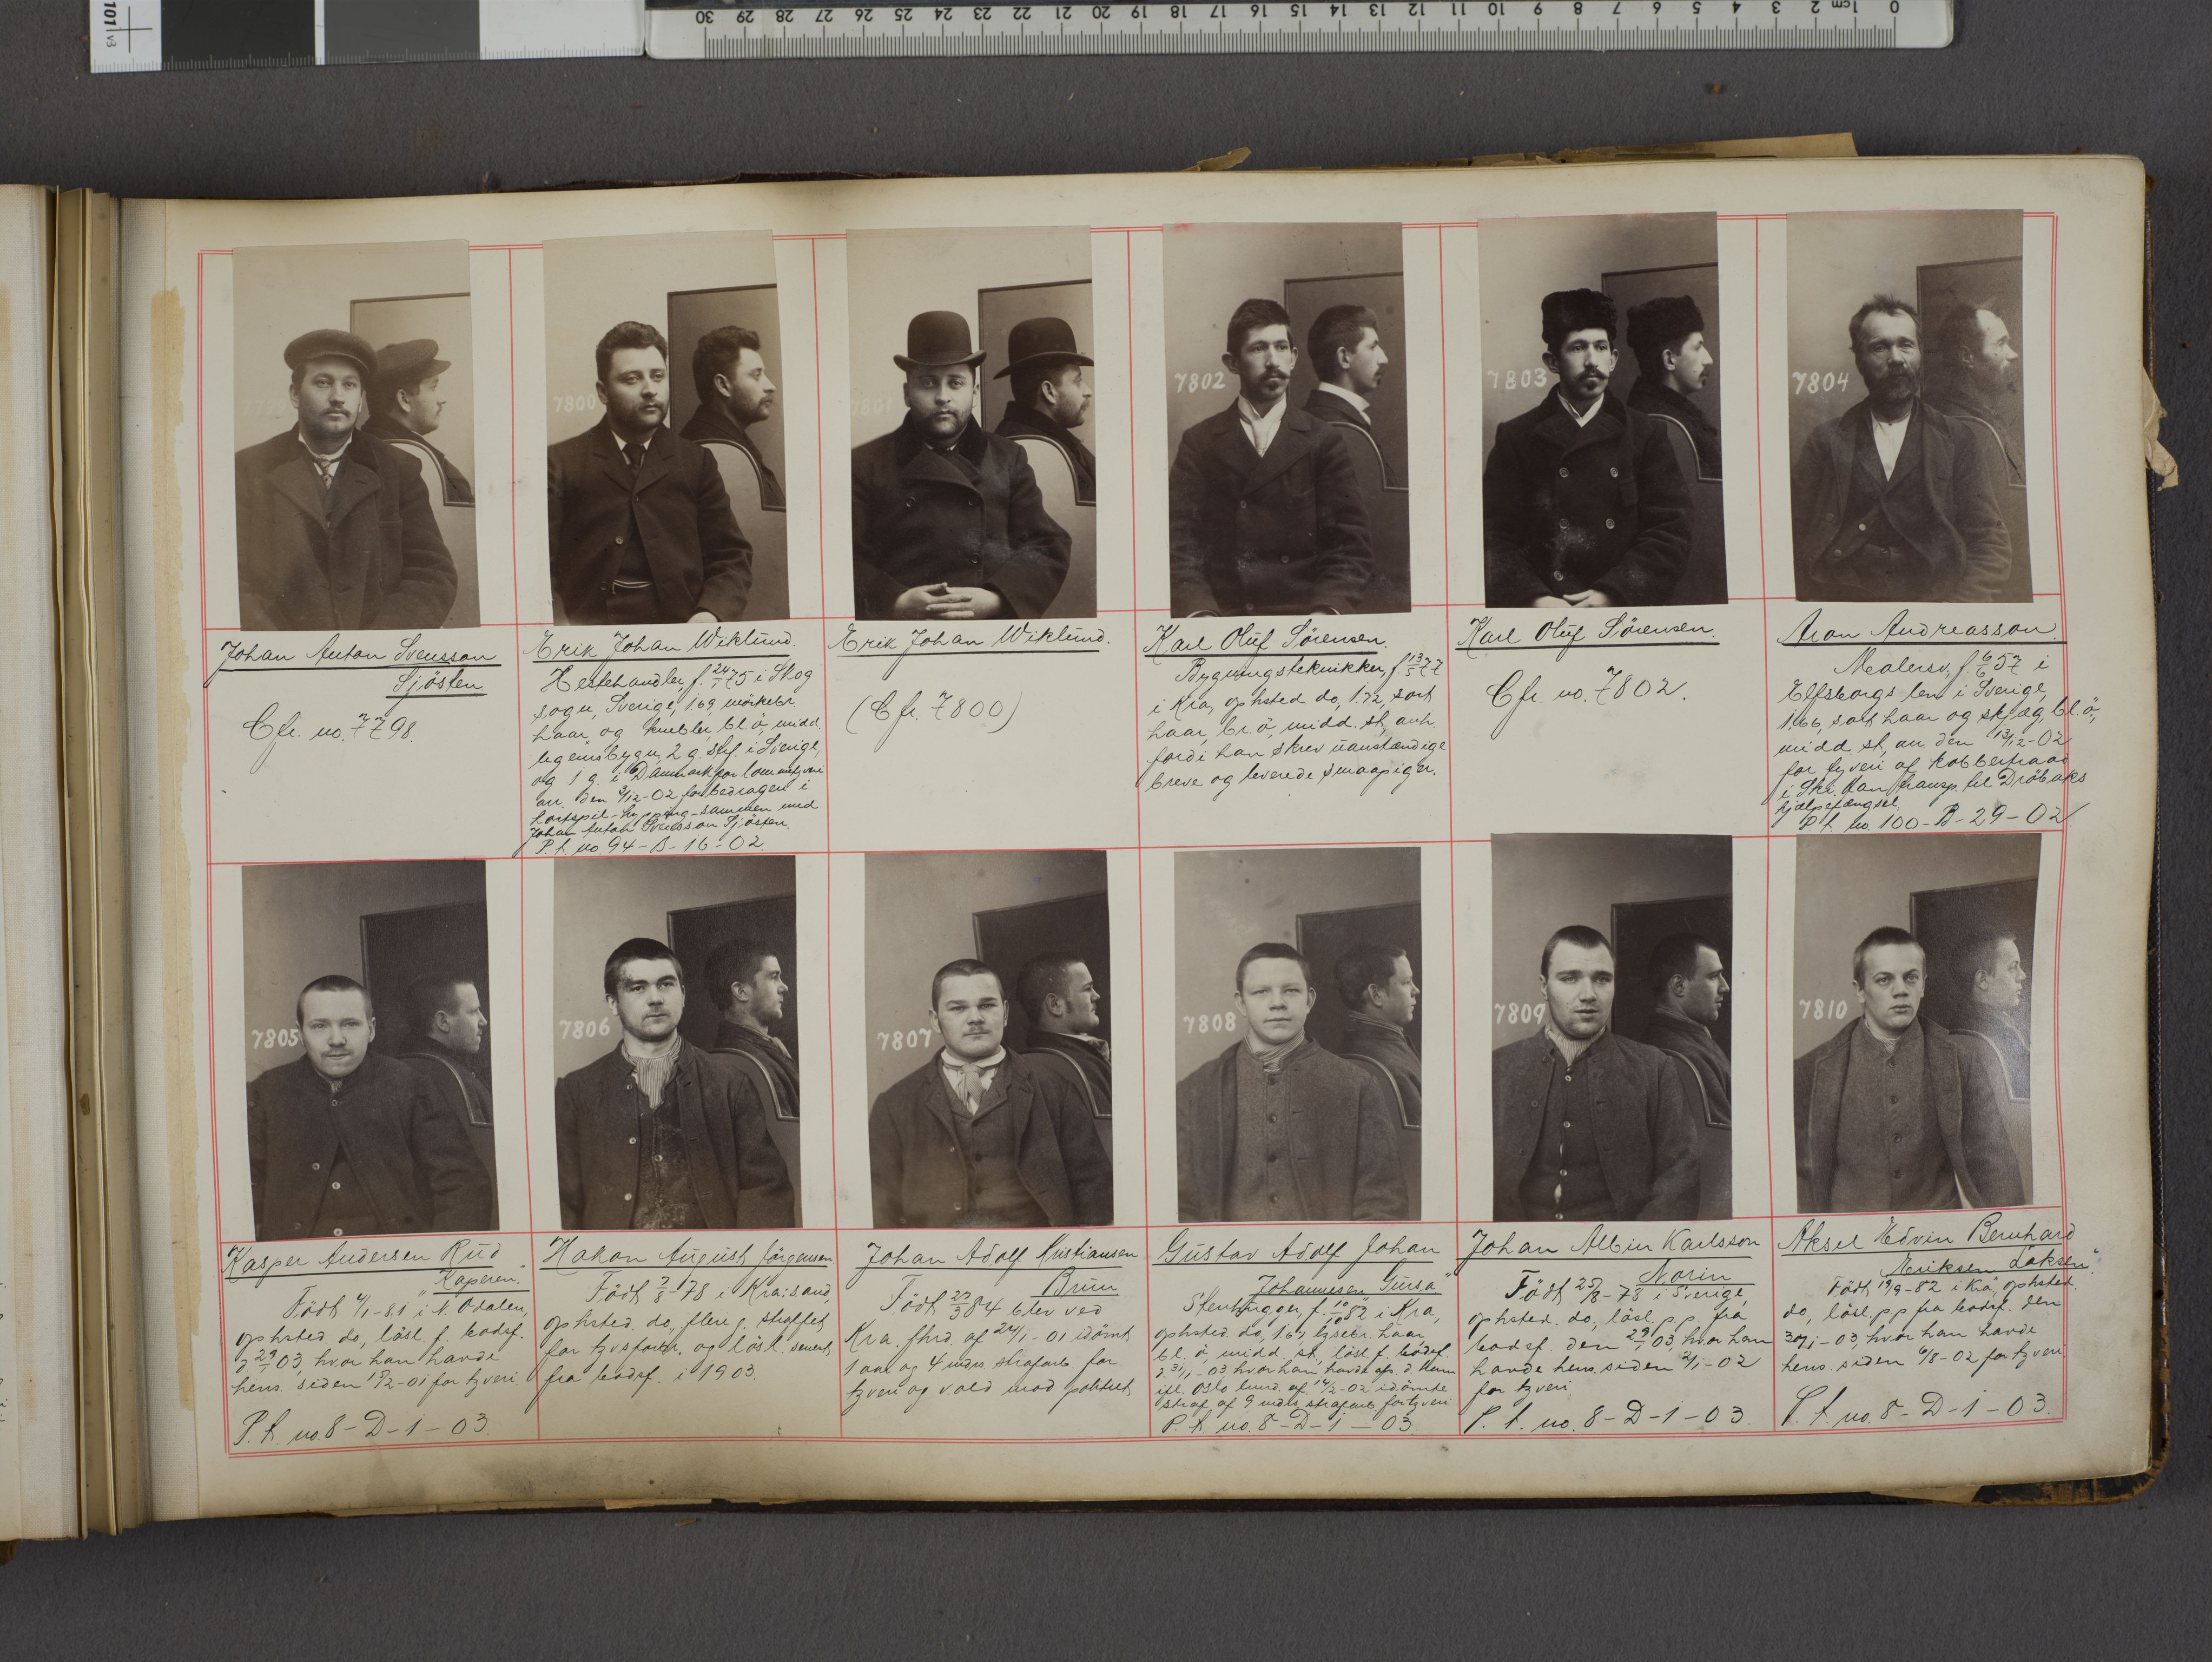 101 v3
30 29 28 27 26 25 24 23 22 21 20 19 18 17 16 15 14 13 12 11 10 9 8 7 6 5 4 3 2 1cm 0
7800
7801
7802
7803
7804
Johan Anton Svensson
Sjösten
Cfr. no. 7798.
Erik Johan Wiklund.
Hestehandler, f. 24/1 75 i Skog
sogn, Sverige, 169 mörkebr.
haar og knebler, bl. ö, midd.
legemsbygn, 2 g. stf. i Sverige,
og 1 g. i Danmark for lommetyveri
an. den 3/12-02 for bedrageri i
kortspil-kypping-sammen med
Johan Anton Svensson Sjösten.
P. t. no 94-B-16-02.
Erik Johan Wiklund.
(Cfr. 7800)
Karl Oluf Sörensen.
Bygningstekniker, f. 13/5 77
i Kra, ophsted do, 1.72, sort
haar, br. ö, midd. st, anh.
fordi han skrev uanstændige
breve og leverede smaapiger.
Karl Oluf Sörensen.
Cfr. no. 7802.
Aron Andreasson.
Malersv, f. 6/6 57 i
Elfsborgs len i Sverige,
1.66, sort haar og skjæg, bl. ö,
midd st, an. den 13/12-02
for tyveri af kobbertraad
i Ski. Han transp. til Dröbaks
hjælpefængsel.
P. t. no. 100-B-29-02
7805
7806
7807
7808
7809
7810
Kasper Andersen Rud
"Kaperen."
Födt 4/1-81 i N. Odalen,
ophsted do, lösl. f. bodsf.
d. 29/1 03, hvor han havde
hens. siden 17/2-01 for tyveri
P. t. no. 8-D-1-03
Hakon August Jörgensen
Födt 7/8 78 i Kra:sand,
ophsted. do, flere g. straffet
for tyvsforbr. og lösl. senest
fra bodsf. i 1903.
Johan Adolf Kristiansen
Brun
Födt 27/3 84 blev ved
Kra. fhrd af 24/1-01 idömt
1 aar og 4 mdrs strafarb for
tyveri og vold mod politiet
Gustav Adolf Johan
Johannesen "Gursa"
Stenhugger, f. 10/10 82 i Kra,
ophsted. do, 1.67, lysebr. haar,
bl. ö, midd. st., lösl. f. bodsf.
d. 31/1-03 hvor han havde afs. d. ham
ifl. Oslo lmrd. af 14/2-02 idömte
straf af 9 mdrs strafarb for tyveri
P. t. no. 8-D-1-03
Johan Albin Karlsson
Norin
Födt 25/8-78 i Sverige,
ophsted. do, lösl. p.p. fra
bodsf. den 29/1 03, hvor han
havde hens. siden 2/1-02
for tyveri.
P. t. no. 8-D-1-03.
Aksel Edvin Bernhard
Eriksen "Laksen."
Födt 19/9-82 i Kra, ophsted.
do, lösl. p.p fra bodsf. den
30/1-03, hvor han havde
hens. siden 6/8-02 for tyveri.
P. t. no. 8-D-1-03.